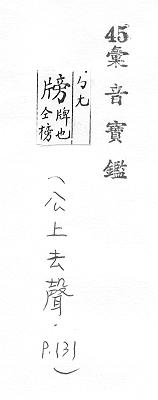 45彙音寶鑑
ㄅㄤ
牓
牌也
仝榜
(公上去聲.P.131)